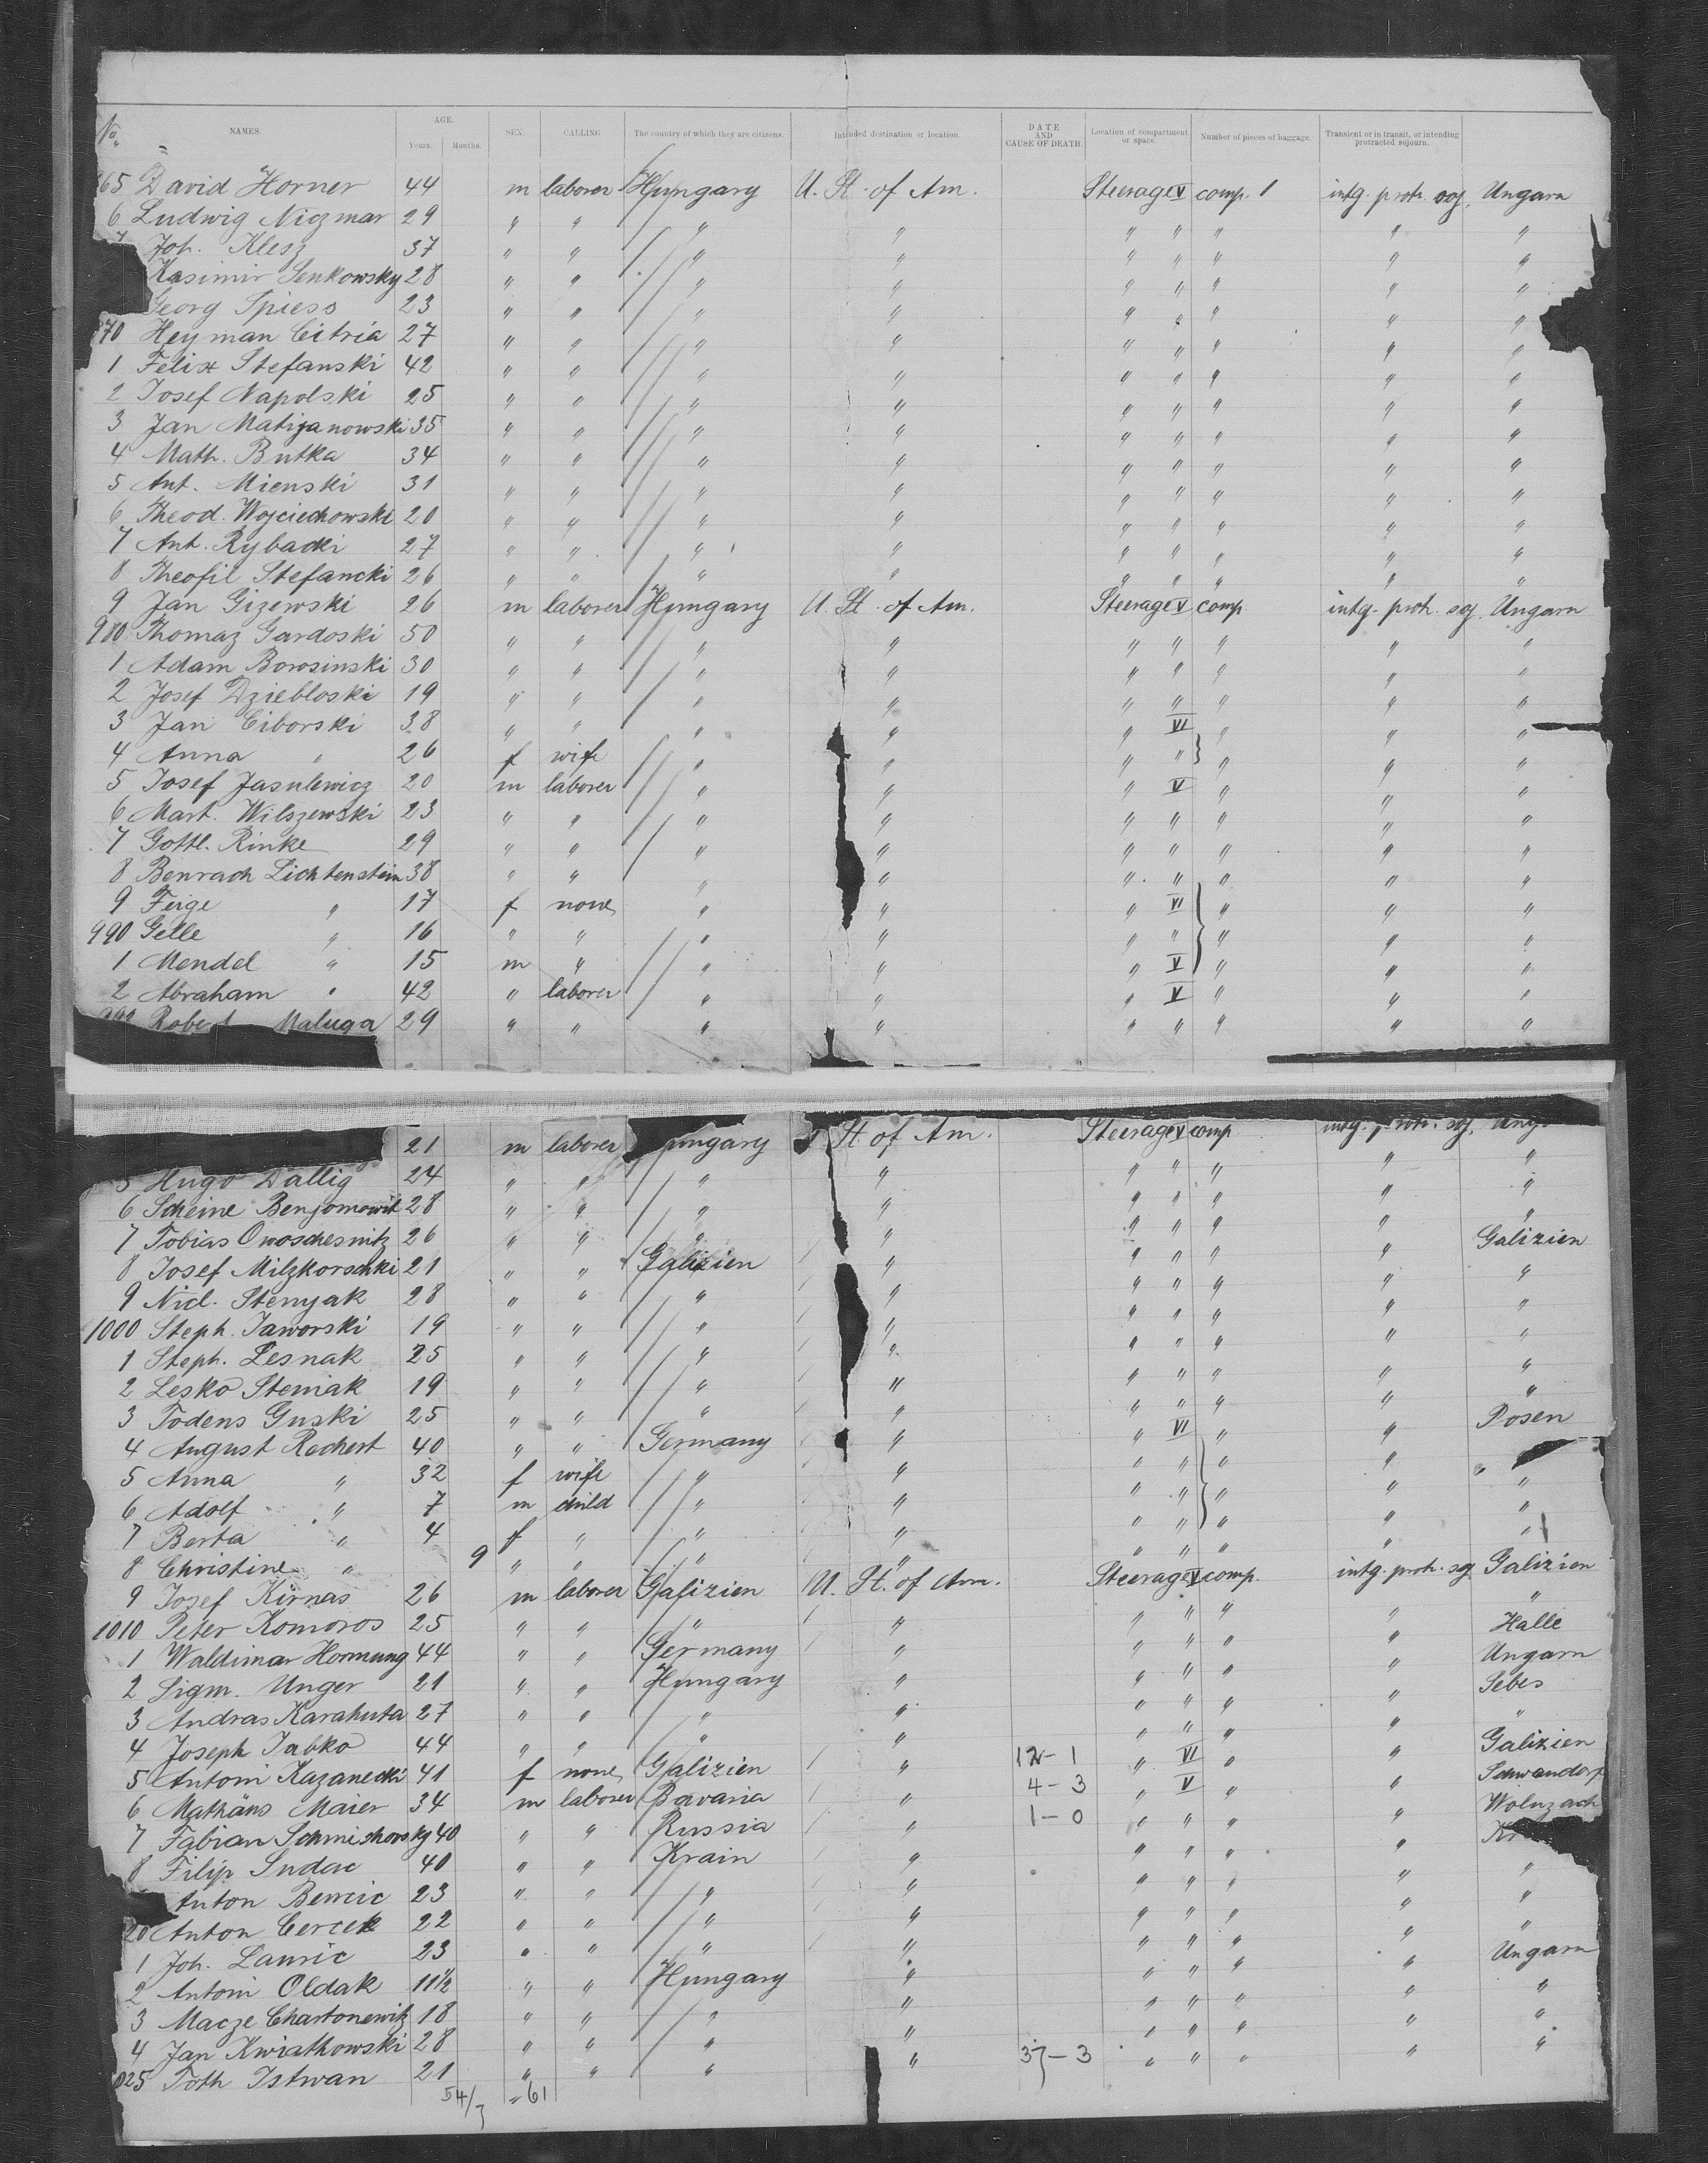 No. NAMES. AGE. Years. Months. SEX. CALLING. The country of which they are citizens. Intended destination or location. DATE AND CAUSE OF DEATH. Location of compartment or space. Number of pieces of baggage. Transient or in transit, or intending protracted sojourn.
65 David Horner 44 m laborer Hungary U. St. of Am. Steerage V comp. 1 intg. protr. soj. Ungarn
6 Ludwig Niczmar 29 " " " " " " " " "
7 Joh. Klesz 37 " " " " " " " " "
Kasimir Senkowsky 28 " " " " " " " " "
Georg Spiess 23 " " " " " " " " "
970 Heyman Citria 27 " " " " " " " " "
1 Felix Stefanski 42 " " " " " " " " "
2 Josef Napolski 25 " " " " " " " " "
3 Jan Matijanowski 35 " " " " " " " " "
4 Math. Butka 34 " " " " " " " " "
5 Ant. Mienski 31 " " " " " " " " "
6 Theod. Wojciechowski 20 " " " " " " " " "
7 Ant. Rybacki 27 " " " " " " " " "
8 Theofil Stefancki 26 " " " " " " " " "
9 Jan Gizewski 26 m laborer Hungary U. St. of Am. Steerage V comp intg. protr. soj. Ungarn
980 Thomaz Gardoski 50 " " " " " " " " "
1 Adam Borosinski 30 " " " " " " " " "
2 Josef Dziebloski 19 " " " " " " " " "
3 Jan Ciborski 38 " " " " " VI " " "
4 Anna " 26 f wife " " " " " " "
5 Josef Jasulewicz 20 m laborer " " " V " " "
6 Mart. Wilszewski 23 " " " " " " " " "
7 Gottl. Rinke 29 " " " " " " " " "
8 Benrach Lichtenstein 38 " " " " " " " " "
9 Feige " 17 f none " " " VI " " "
990 Gelle " 16 " " " " " " " " "
1 Mendel " 15 m " " " " V " " "
2 Abraham " 42 " laborer " " " V " " "
993 Robert Maluga 29 " " " " " " " " "
21 m laborer Hungary St of Am. Steerage V comp intg. protr. soj. Ung.
5 Hugo Dallig 24 " " " " " " " " "
6 Scheine Benjomowit 28 " " " " " " " " "
7 Tobias Owoschesnitz 26 " " " " " " " " "
8 Josef Milzkorschki 21 " " Galizien " " " " " Galizien
9 Nicl. Stenyak 28 " " " " " " " " "
1000 Steph. Jaworski 19 " " " " " " " " "
1 Steph. Lesnak 25 " " " " " " " " "
2 Lesko Steniak 19 " " " " " " " " "
3 Todens Guski 25 " " " " " " " " "
4 August Rechert 40 " " Germany " " VI " " Posen
5 Anna " 32 f wife " " " " " " "
6 Adolf " 7 m child " " " " " " "
7 Berta " 4 f " " " " " " " "
8 Christine " 9 " " " " " " " " "
9 Josef Kirnas 26 m laborer Galizien U. St. of Am. Steerage V comp. intg. protr. soj. Galizien
1010 Peter Komoros 25 " " " " " " " " "
1 Waldimar Hornung 44 " " Germany " " " " " Halle
2 Sigm. Unger 21 " " Hungary " " " " " Ungarn
3 Andras Karahuta 27 " " " " " " " " Sebes
4 Joseph Jabko 44 " " " " " " " " "
5 Antoni Kazanecki 41 f none Galizien " 12-1 " VI " " Galizien
6 Mathäus Maier 34 m laborer Bavaria " 4-3 " V " " Schwandorf
7 Fabian Schmichowsky 40 " " Russia " 1-0 " " " " Wolnzach
8 Filip Sudac 40 " " Krain " " " " " Kr
Anton Bencic 23 " " " " " " " " "
20 Anton Cercek 22 " " " " " " " " "
1 Joh. Lauric 23 " " " " " " " " "
2 Antoni Oldak 11 1/2 " " Hungary " " " " " Ungarn
3 Macze Chartonewitz 18 " " " " " " " " "
4 Jan Kwiatkowski 28 " " " " " " " " "
1025 Toth Istwan 21 " " " " 37-3 " " " " "
54/7 = 61